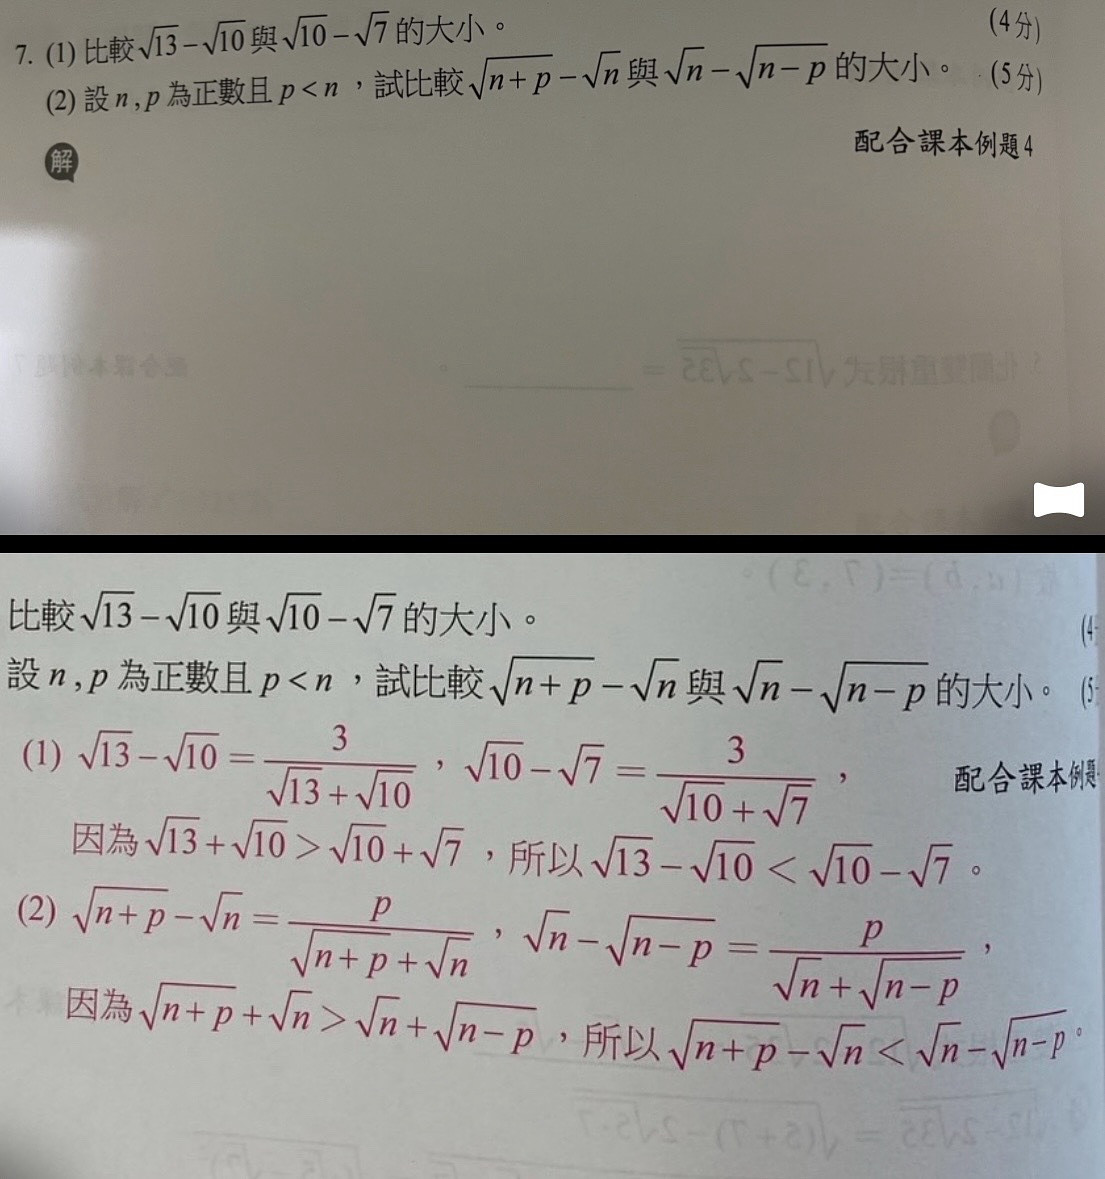 7. (1) 比較√13−√10與√10−√7的大小。 (4分)
(2) 設n,p為正數且p<n，試比較√(n+p)−√n與√n−√(n−p)的大小。 (5分)
配合課本例題4
解
比較√13−√10與√10−√7的大小。 (4
設n,p為正數且p<n，試比較√(n+p)−√n與√n−√(n−p)的大小。 (5
(1) √13−√10=3/(√13+√10)，√10−√7=3/(√10+√7)，
配合課本例題
因為√13+√10>√10+√7，所以√13−√10<√10−√7。
(2) √(n+p)−√n=p/(√(n+p)+√n)，√n−√(n−p)=p/(√n+√(n−p))，
因為√(n+p)+√n>√n+√(n−p)，所以√(n+p)−√n<√n−√(n−p)。